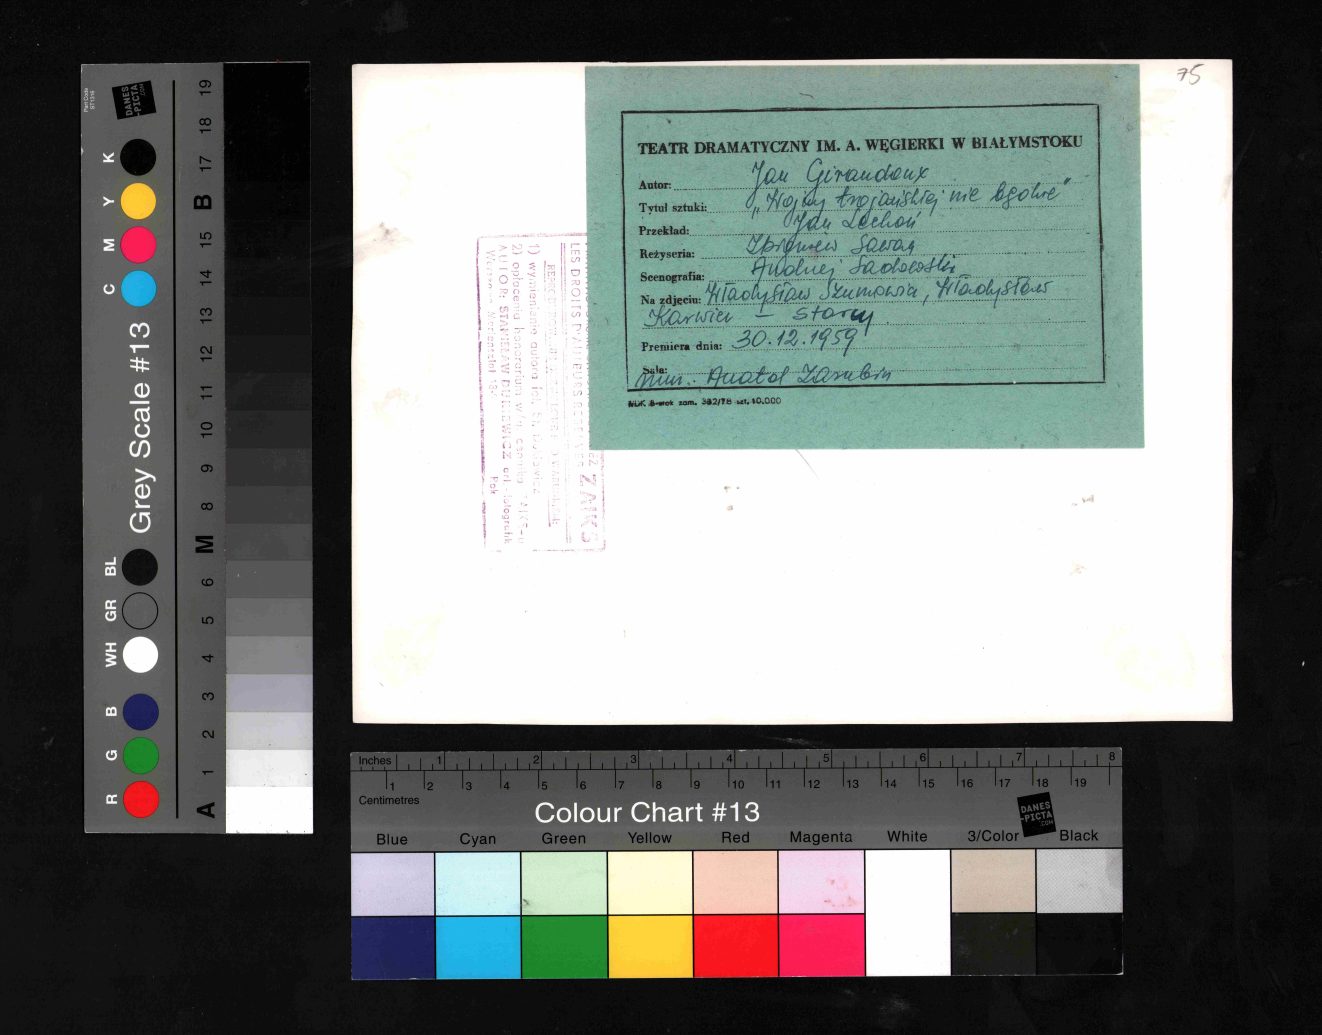 75
TEATR DRAMATYCZNY IM. A. WĘGIERKI W BIAŁYMSTOKU
Autor: Jan Giraudoux
Tytuł sztuki: "Wojny trojańskiej nie będzie"
Przekład: Jan Lechoń
Reżyseria: Zbigniew Sawan
Scenografia: Andrzej Sadowski
Na zdjęciu: Władysław Szumowicz, Władysław
Karwien - Starcy
Premiera dnia: 30.12.1959
Sala:
muz. Anatol Zarubin
B-stok zam. 382/78 szt. 10.000
ZAIKS
LES DROITS D'AUTEURS
1) wymienienia autora
2) opłacenia honorarium
AUTOR: STANISŁAW
Rok
Grey Scale #13
DANES
-PICTA
.COM
R G B WH GR BL C M Y K
A 1 2 3 4 5 6 M 8 9 10 11 12 13 14 15 B 17 18 19
Inches 1 2 3 4 5 6 7 8
1 2 3 4 5 6 7 8 9 10 11 12 13 14 15 16 17 18 19
Centimetres
Colour Chart #13
DANES
-PICTA
.COM
Blue Cyan Green Yellow Red Magenta White 3/Color Black